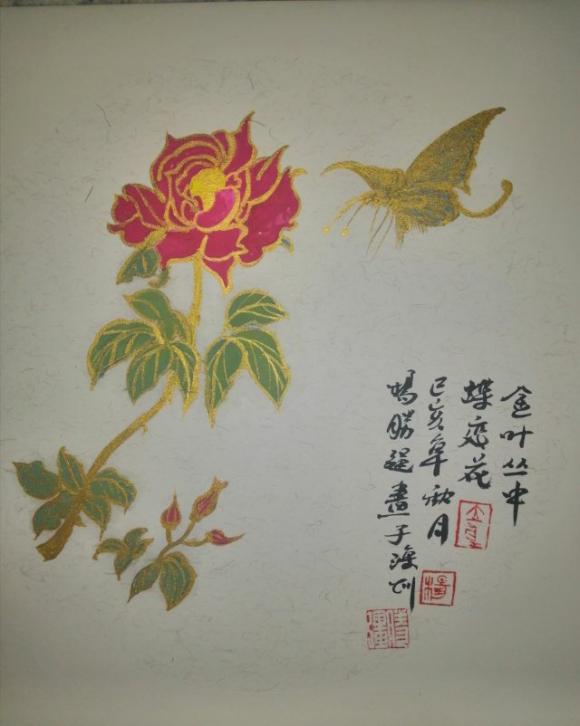 金叶丛中
蝶恋花
己亥年秋月
楊勝選畫于深圳